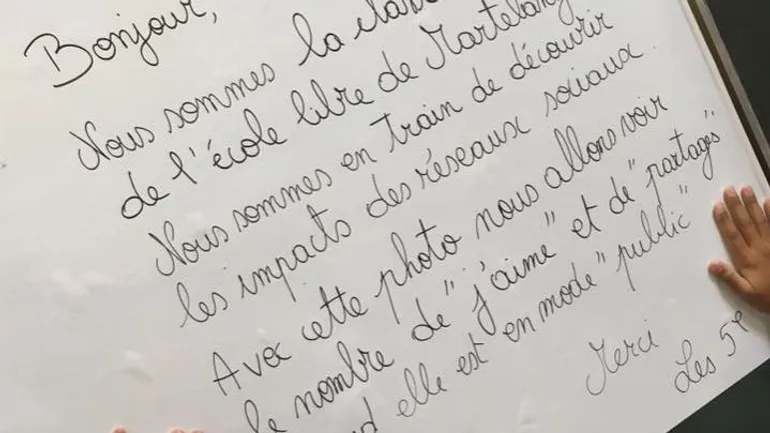 Bonjour,
Nous sommes la
de l'école libre de
Nous sommes en train de découvrir
les impacts des réseaux sociaux.
Avec cette photo nous allons voir
le nombre de "j'aime" et de "partages"
elle est en mode "public"
Merci
Les 5e